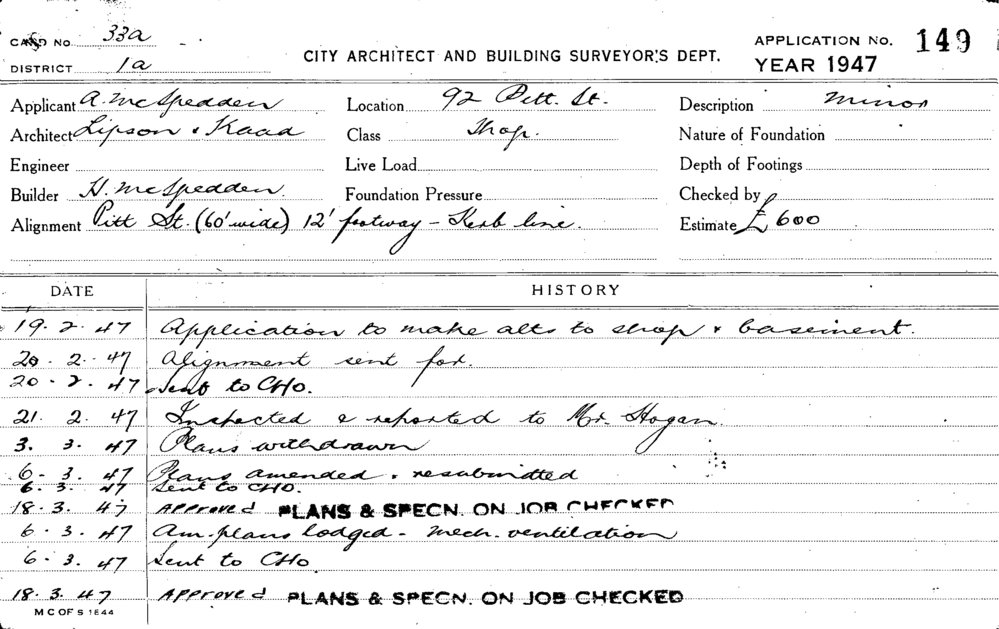 CARD No. 33a
DISTRICT 1a
CITY ARCHITECT AND BUILDING SURVEYOR'S DEPT.
APPLICATION No. 149
YEAR 1947
Applicant A. McSpedden Location 92 Pitt. St. Description minor
Architect Lipson & Kaad Class Shop. Nature of Foundation
Engineer Live Load Depth of Footings
Builder H. McSpedden. Foundation Pressure Checked by
Alignment Pitt St. (60' wide) 12' footway - Kerb line. Estimate £600
DATE HISTORY
19. 2. 47 Application to make alts to shop & basement.
20. 2. 47 Alignment sent for.
20. 2. 47 Sent to CHO.
21. 2. 47 Inspected & reported to Mr. Hogan.
3. 3. 47 Plans withdrawn
6. 3. 47 Plans amended & resubmitted
6. 3. 47 Sent to CHO.
18. 3. 47 Approved PLANS & SPECN. ON JOB CHECKED
6. 3. 47 Am. plans lodged - mech. ventilation
6. 3. 47 Sent to CHO
18. 3. 47 Approved PLANS & SPECN. ON JOB CHECKED
M C OF S 1844